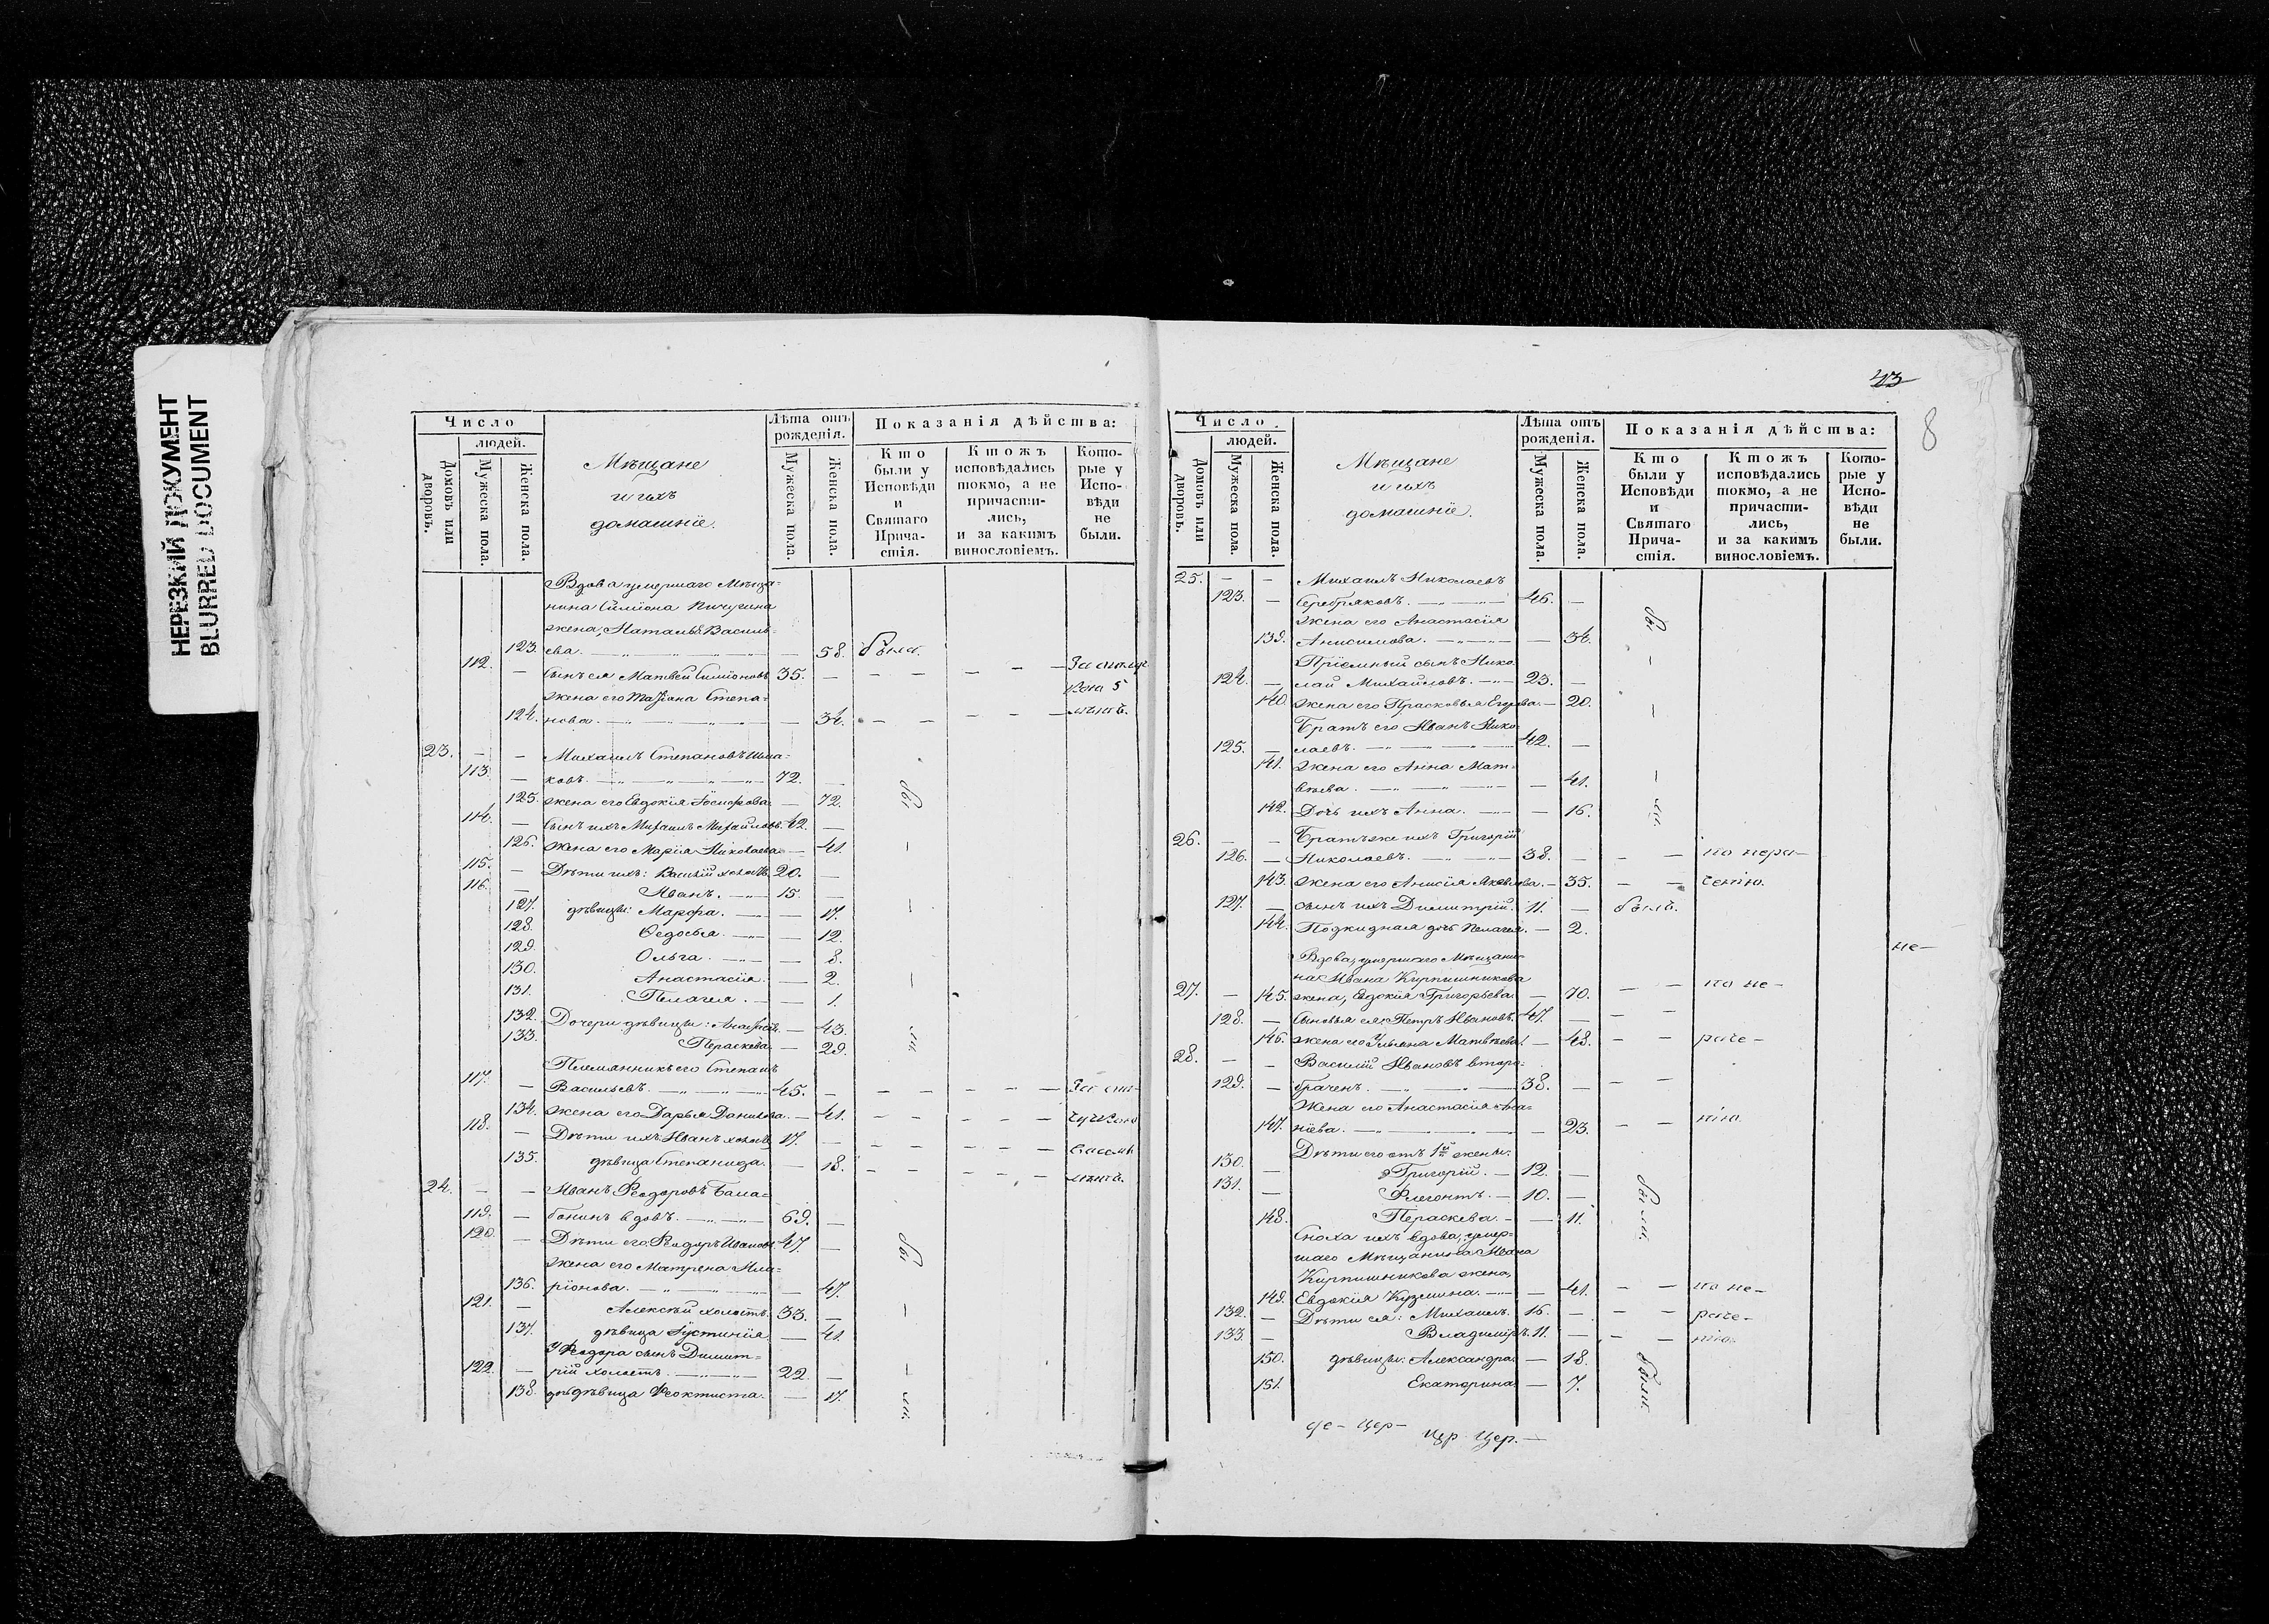 НЕРЕЗКИЙ ДОКУМЕНТ
BLURRED DOCUMENT
Число
людей.
Домовъ или дворовъ.
Мужеска пола.
Женска пола.
Мѣщане
и ихъ
домашніе.
Лѣта отъ рожденія.
Мужеска пола.
Женска пола.
Показанія дѣйства:
Кто были у Исповѣди и Святаго Прича-стія.
Ктожъ исповѣдались токмо, а не причасти-лись, и за какимъ винословіемъ.
Кото-рые у Испо-вѣди не были.
Вдова умершаго Мѣща-
нина Симіона Пичугина
жена, Наталья Василь-
123. ева. — 58. была.
112. — Сынъ ея Матвей Симіоновъ 35. — — — — —
жена его Татіана Степа-
124. нова. — — 34. — — — — лѣтъ.
23. — — Михаилъ Степановъ
113. — ковъ. — 72. —
125. жена его Евдокія Іосифова — 72. бы
114. — Сынъ ихъ Михаилъ Михайловъ. 42. —
126. Жена его Марія Николаева — 41. —
115. — Дѣти ихъ: Василій холостъ 20. —
116. — Иванъ. — 15. —
127. дѣвицы: Марфа. — — 17. —
128. Ѳедосья. — — 12.
129. Ольга. — — 8.
130. Анастасія. — 2. —
131. Пелагея. — — 1.
132. Дочери дѣвицы: — 43.
133. Пераскева. — 29. ли.
Племянникъ его Степанъ
117. — Васильевъ. — 45. — — — — —
134. жена его Дарья Данилова. — 41. — — — —
118. — Дѣти ихъ Иванъ холостъ 17. — — — — —
135. дѣвица Степанида. — 18. — — — — лѣтъ.
24. — — Иванъ Ѳеодоровъ Бала-
119. — бонинъ вдовъ. — 69. —
120. — Дѣти его: Ѳеодоръ Ивановъ 47. — бы
жена его Матрена Ила-
136. ріонова. — — 47.
121. — Алексѣй холостъ. 33. — —
137. дѣвица Іустинія — 41.
У Ѳеодора сынъ Димит-
122. — рій холостъ. — 22. — —
138. дѣвица Ѳеоктиста. — 17. ли.
43
8
Число
людей.
Домовъ или дворовъ.
Мужеска пола.
Женска пола.
Мѣщане
и ихъ
домашніе.
Лѣта отъ рожденія.
Мужеска пола.
Женска пола.
Показанія дѣйства:
Кто были у Исповѣди и Святаго Прича-стія.
Ктожъ исповѣдались токмо, а не причасти-лись, и за какимъ винословіемъ.
Кото-рые у Испо-вѣди не были.
25. — — Михаилъ Николаевъ
123. — Серебряковъ. — 46. — бы
жена его Анастасія
139. Анисимова. — — 34.
Пріемный сынъ Нико-
124. — лай Михайловъ. — 23. — —
140. жена его Прасковья Егорова. — 20. —
Братъ его Иванъ Нико-
125. — лаевъ. — 42. —
141. Жена его Анна Мат-
вѣева. — — 41. —
142. Дочь ихъ Анна. — — 16. ли.
26. — — Братъ же ихъ Григорій
126. — Николаевъ. — 38. — — — по нера-
143. жена его Анисія Яковлева. — 35. — — ченію.
127. — сынъ ихъ Димитрій. 11. — былъ.
144. Подкидная дочь Пелагея. — 2.
не-
Вдова, умершаго Мѣщани-
на Ивана Кирпишникова
27. — 145. жена, Евдокія Григорьева — 70. — — по не-
128. — Сыновья ея: Петръ Ивановъ. 47. — — —
146. жена его Ульяна Матвѣева. — 48. — — раче-
28. — — Василій Ивановъ второ-
129. — браченъ. — 38. — — —
Жена его Анастасія Ана-
147. ніева. — — 23. — — нію.
Дѣти его отъ 1й жены:
130. — Григорій. — 12. —
131. — Флегонтъ. — 10. — были.
148. Пераскева. — — 11.
Сноха ихъ вдова, умер-
шаго Мѣщанина Ивана
Кирпишникова жена,
149. Евдокія Кузмина. — — 41. — — по не-
132. — Дѣти ея: Михаилъ. 16. — — — раче-
133. — Владиміръ. 11. — — — нію.
150. дѣвицы: Александра — 18.
151. Екатерина — 7. были.